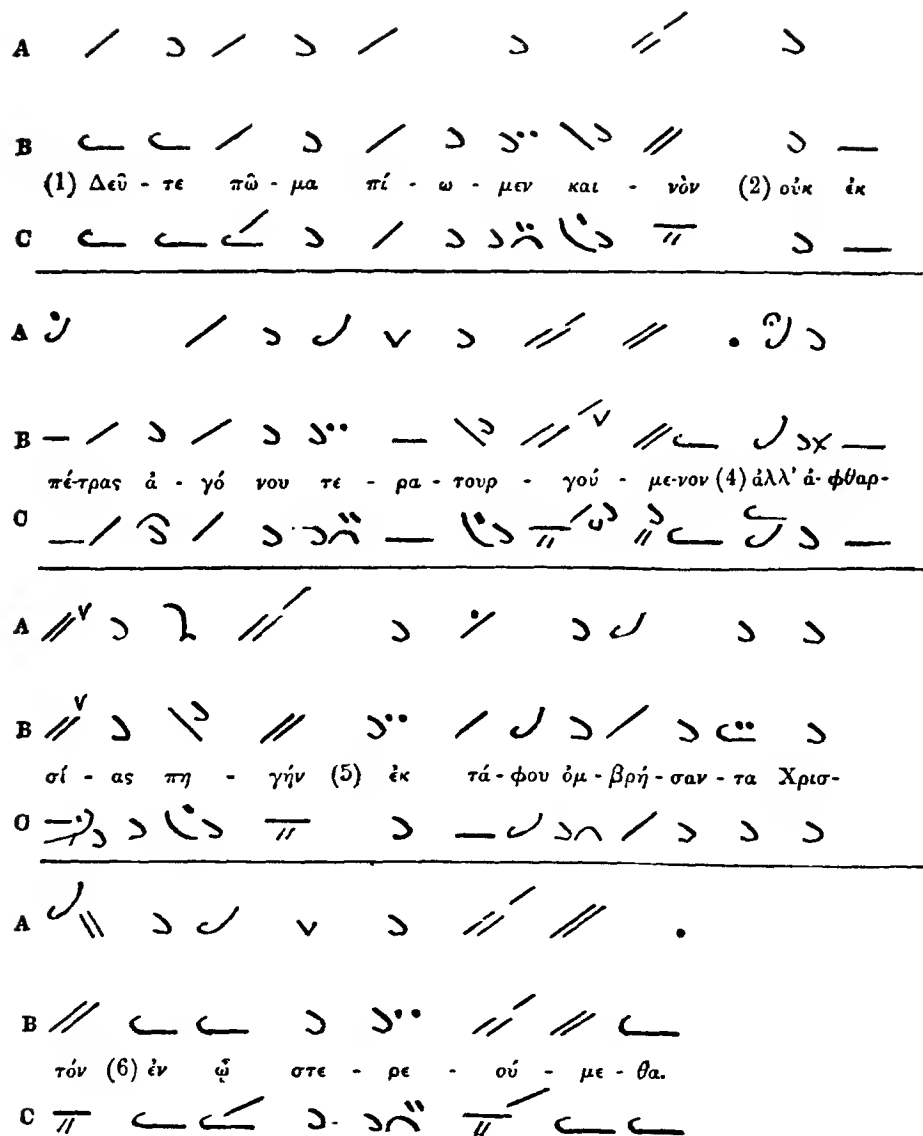 A
B
(1) Δεῦ - τε πῶ - μα πί - ω - μεν και - νὸν (2) οὐκ ἐκ
C
A
B
πέ-τρας ἀ - γό νου τε - ρα - τουρ - γού - με-νον (4) ἀλλ' ἀ- φθαρ-
C
A
B
σί - ας πη - γήν (5) ἐκ τά - φου ὀμ - βρή - σαν - τα Χρισ-
C
A
B
τόν (6) ἐν ᾧ στε - ρε - ού - με - θα.
C